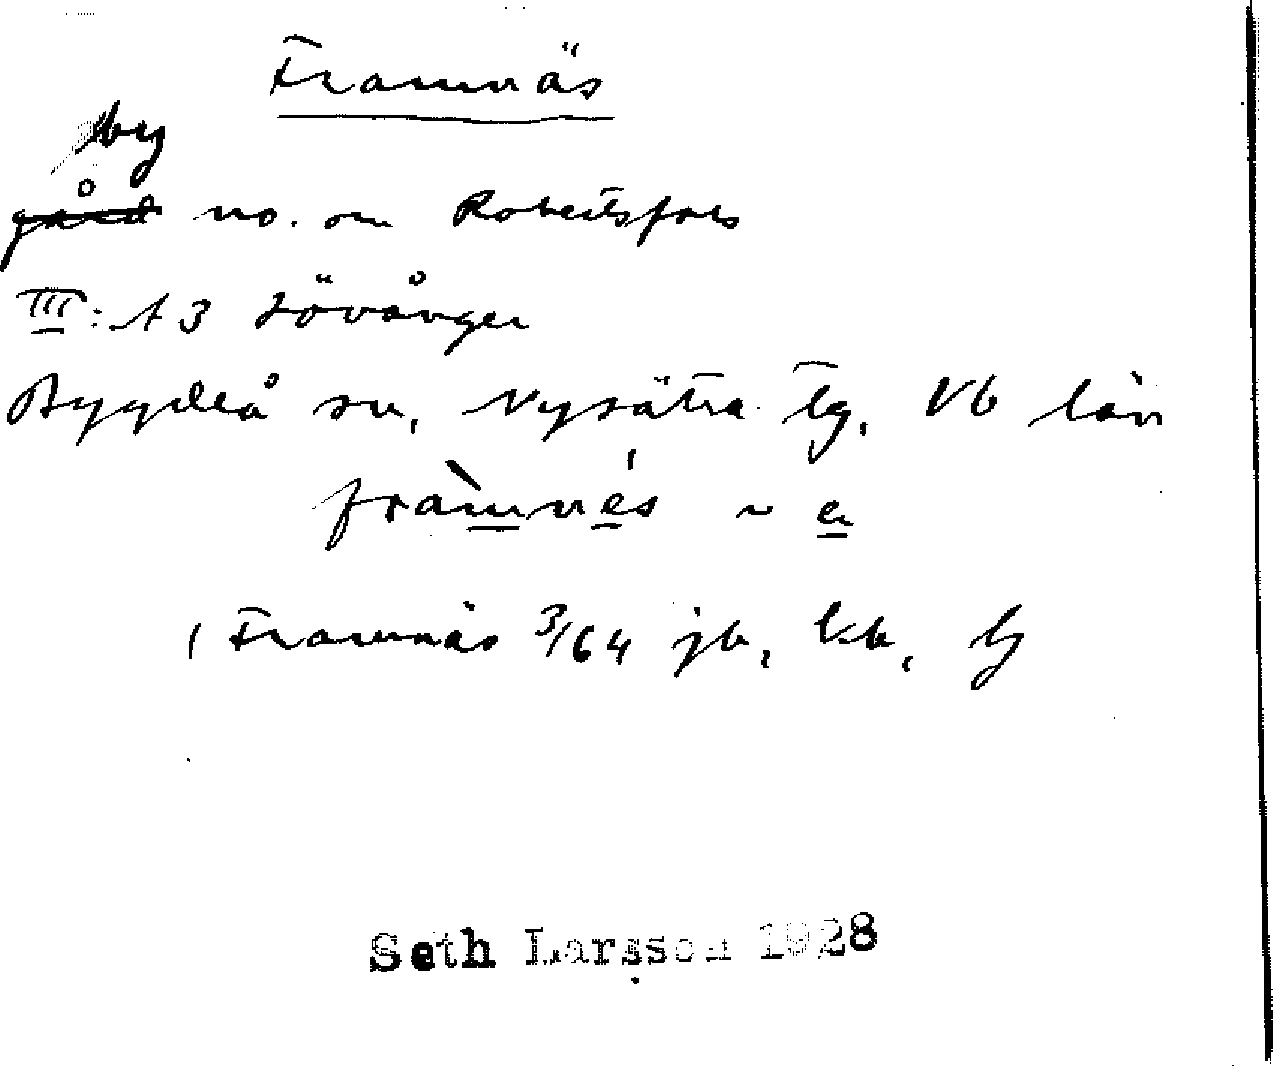 Framnäs
by
gård no. om Robertsfors
III: A 3 Lövånger
Bygdeå sn, Nysätra tg, Vb län
fràmnés ~ e
1 Framnäs 3/64 jb,
Seth Larsson 1928